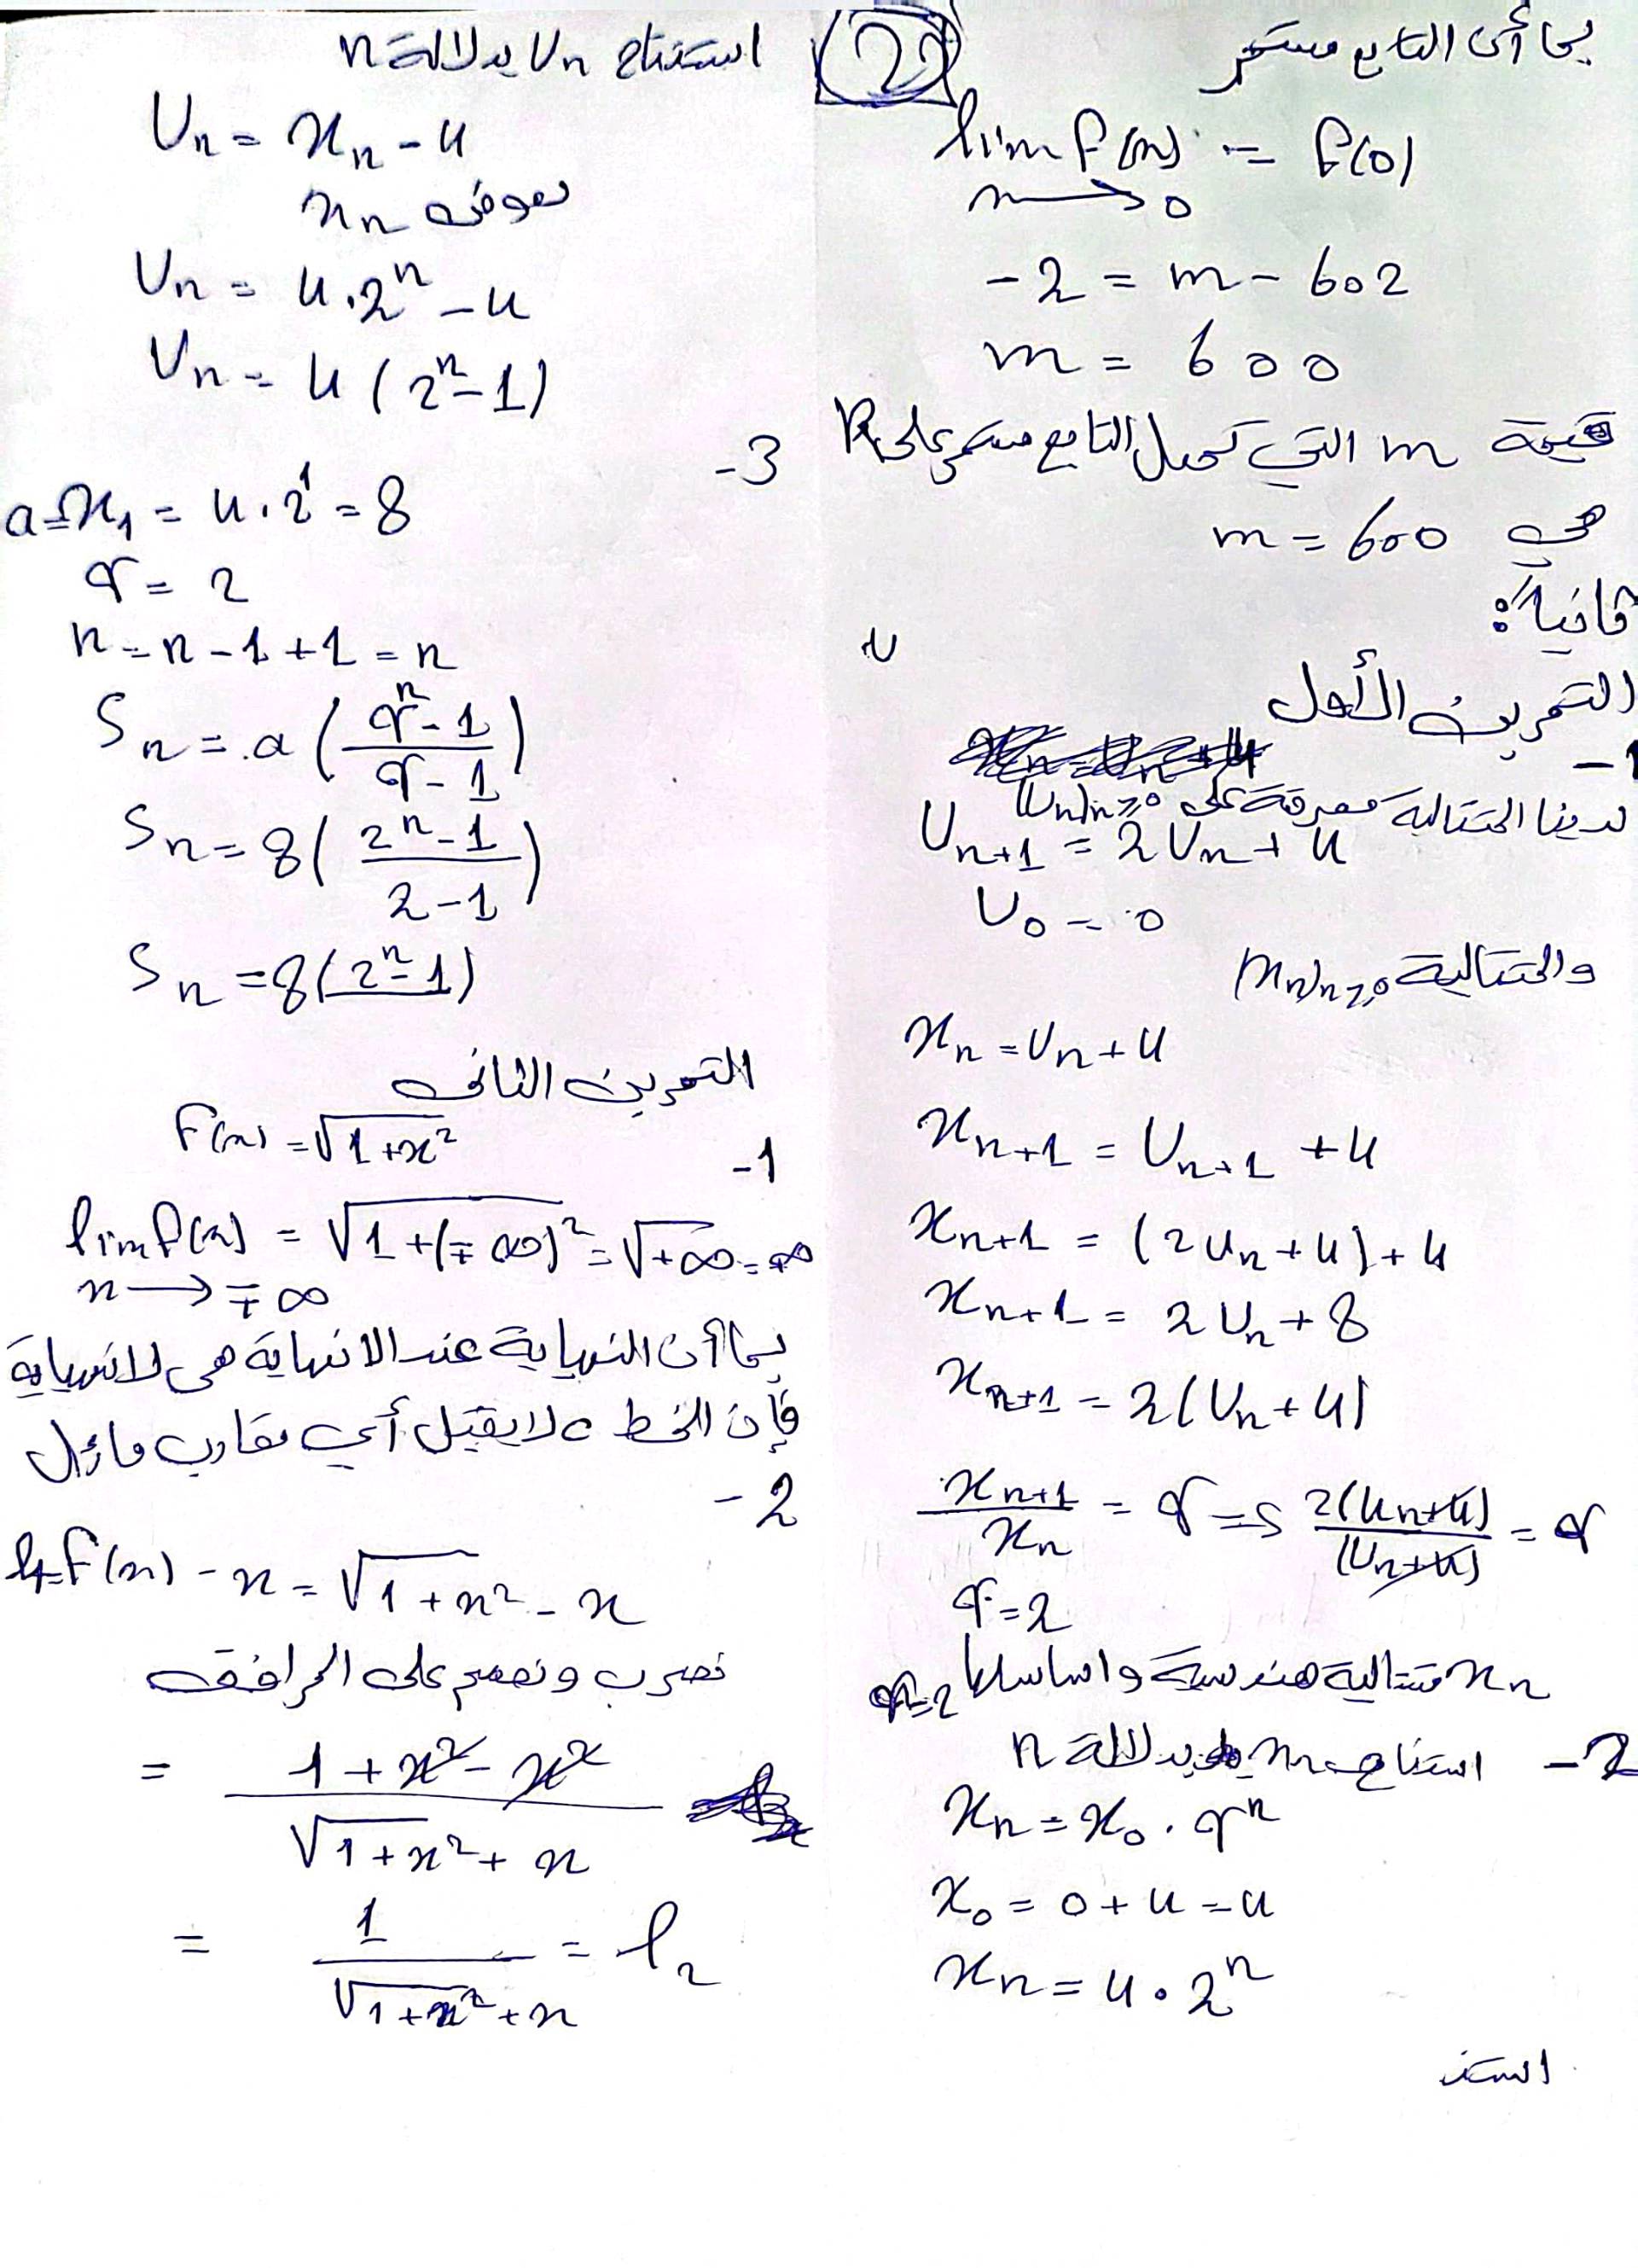 2
بما أن التابع مستمر
lim f(x) = f(0)
x → 0
-2 = m - 602
m = 600
قيمة m التي تجعل التابع مستمر على R
هي m = 600
ثانياً:
التمرين الأول
-1
لدينا المتتالية معرفة على (Un)n≥0
Un+1 = 2Un + 4
U0 = 0
والمتتالية (xn)n≥0
xn = Un + 4
xn+1 = Un+1 + 4
xn+1 = (2Un + 4) + 4
xn+1 = 2Un + 8
xn+1 = 2(Un + 4)
xn+1 / xn = q => 2(Un+4) / (Un+4) = q
q = 2
xn متتالية هندسية واساسها q=2
2- استنتاج xn بدلالة n
xn = x0 . q^n
x0 = 0 + 4 = 4
xn = 4 . 2^n
استن
استنتاج Un بدلالة n
Un = xn - 4
نعوض xn
Un = 4.2^n - 4
Un = 4(2^n - 1)
-3
a = x1 = 4 . 2^1 = 8
q = 2
n = n - 1 + 1 = n
Sn = a ( (q^n - 1) / (q - 1) )
Sn = 8 ( (2^n - 1) / (2 - 1) )
Sn = 8(2^n - 1)
التمرين الثاني
-1 f(x) = √(1+x²)
lim f(x) = √(1+(∓∞)²) = √(+∞) = +∞
x → ∓∞
بما أن النهاية عند الانهاية هي لانهاية
فإن الخط c لا يقبل أي مقارب مائل
-2
f(x) - x = √(1+x²) - x
نضرب ونقسم على المرافق
= (1 + x² - x²) / (√(1+x²) + x)
= 1 / (√(1+x²) + x) = l2